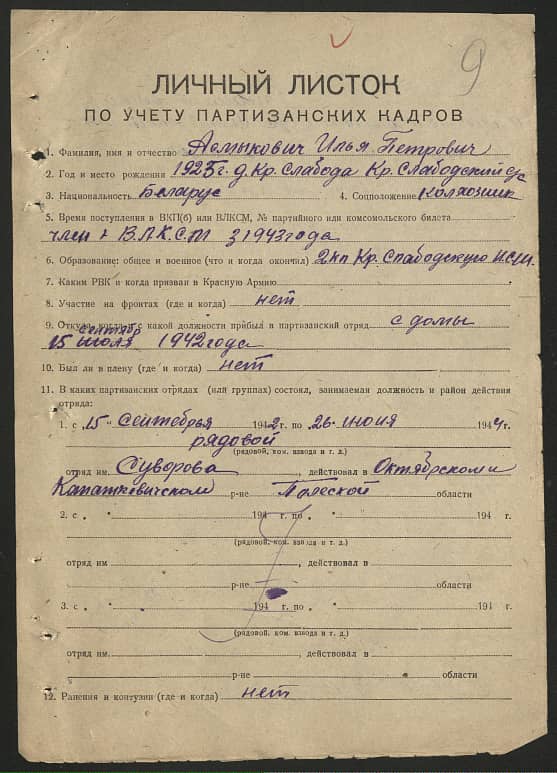 9
ЛИЧНЫЙ ЛИСТОК
ПО УЧЕТУ ПАРТИЗАНСКИХ КАДРОВ
1. Фамилия, имя и отчество Асмыкович Илья Петрович
2. Год и место рождения 1925г. д. Кр. Слабода Кр. Слабодский с/с
3. Национальность Беларус 4. Соцположение Колхозник
5. Время поступления в ВКП(б) или ВЛКСМ, № партийного или комсомольского билета
член В.Л.К.С.М з 1943 года
6. Образование: общее и военное (что и когда окончил) Кр. Слабодскую НСШ.
7. Каким РВК и когда призван в Красную Армию
8. Участие на фронтах (где и когда) нет
9. Откуда, когда и с какой должности прибыл в партизанский отряд с домы
сентябр
15 июля 1942 года
10. Был ли в плену (где и когда) нет
11. В каких партизанских отрядах (или группах) состоял, занимаемая должность и район действия
отряда:
1. с „15" Сентебрья 1942 г. по 26 июня 1944 г.
рядовой
(рядовой, ком. взвода и т. д.)
отряд им. Суворова, действовал в Октябрском и
Капаткевичском р-не Полеской области
2. с „ " 194 г. по „ " 194 г.
(рядовой, ком. взвода и т. д.)
отряд им , действовал в
р-не области
3. с „ " 194 г. по „ " 194 г.
(рядовой, ком. взвода и т. д.)
отряд им. , действовал в
р-не области
12. Ранения и контузии (где и когда) нет